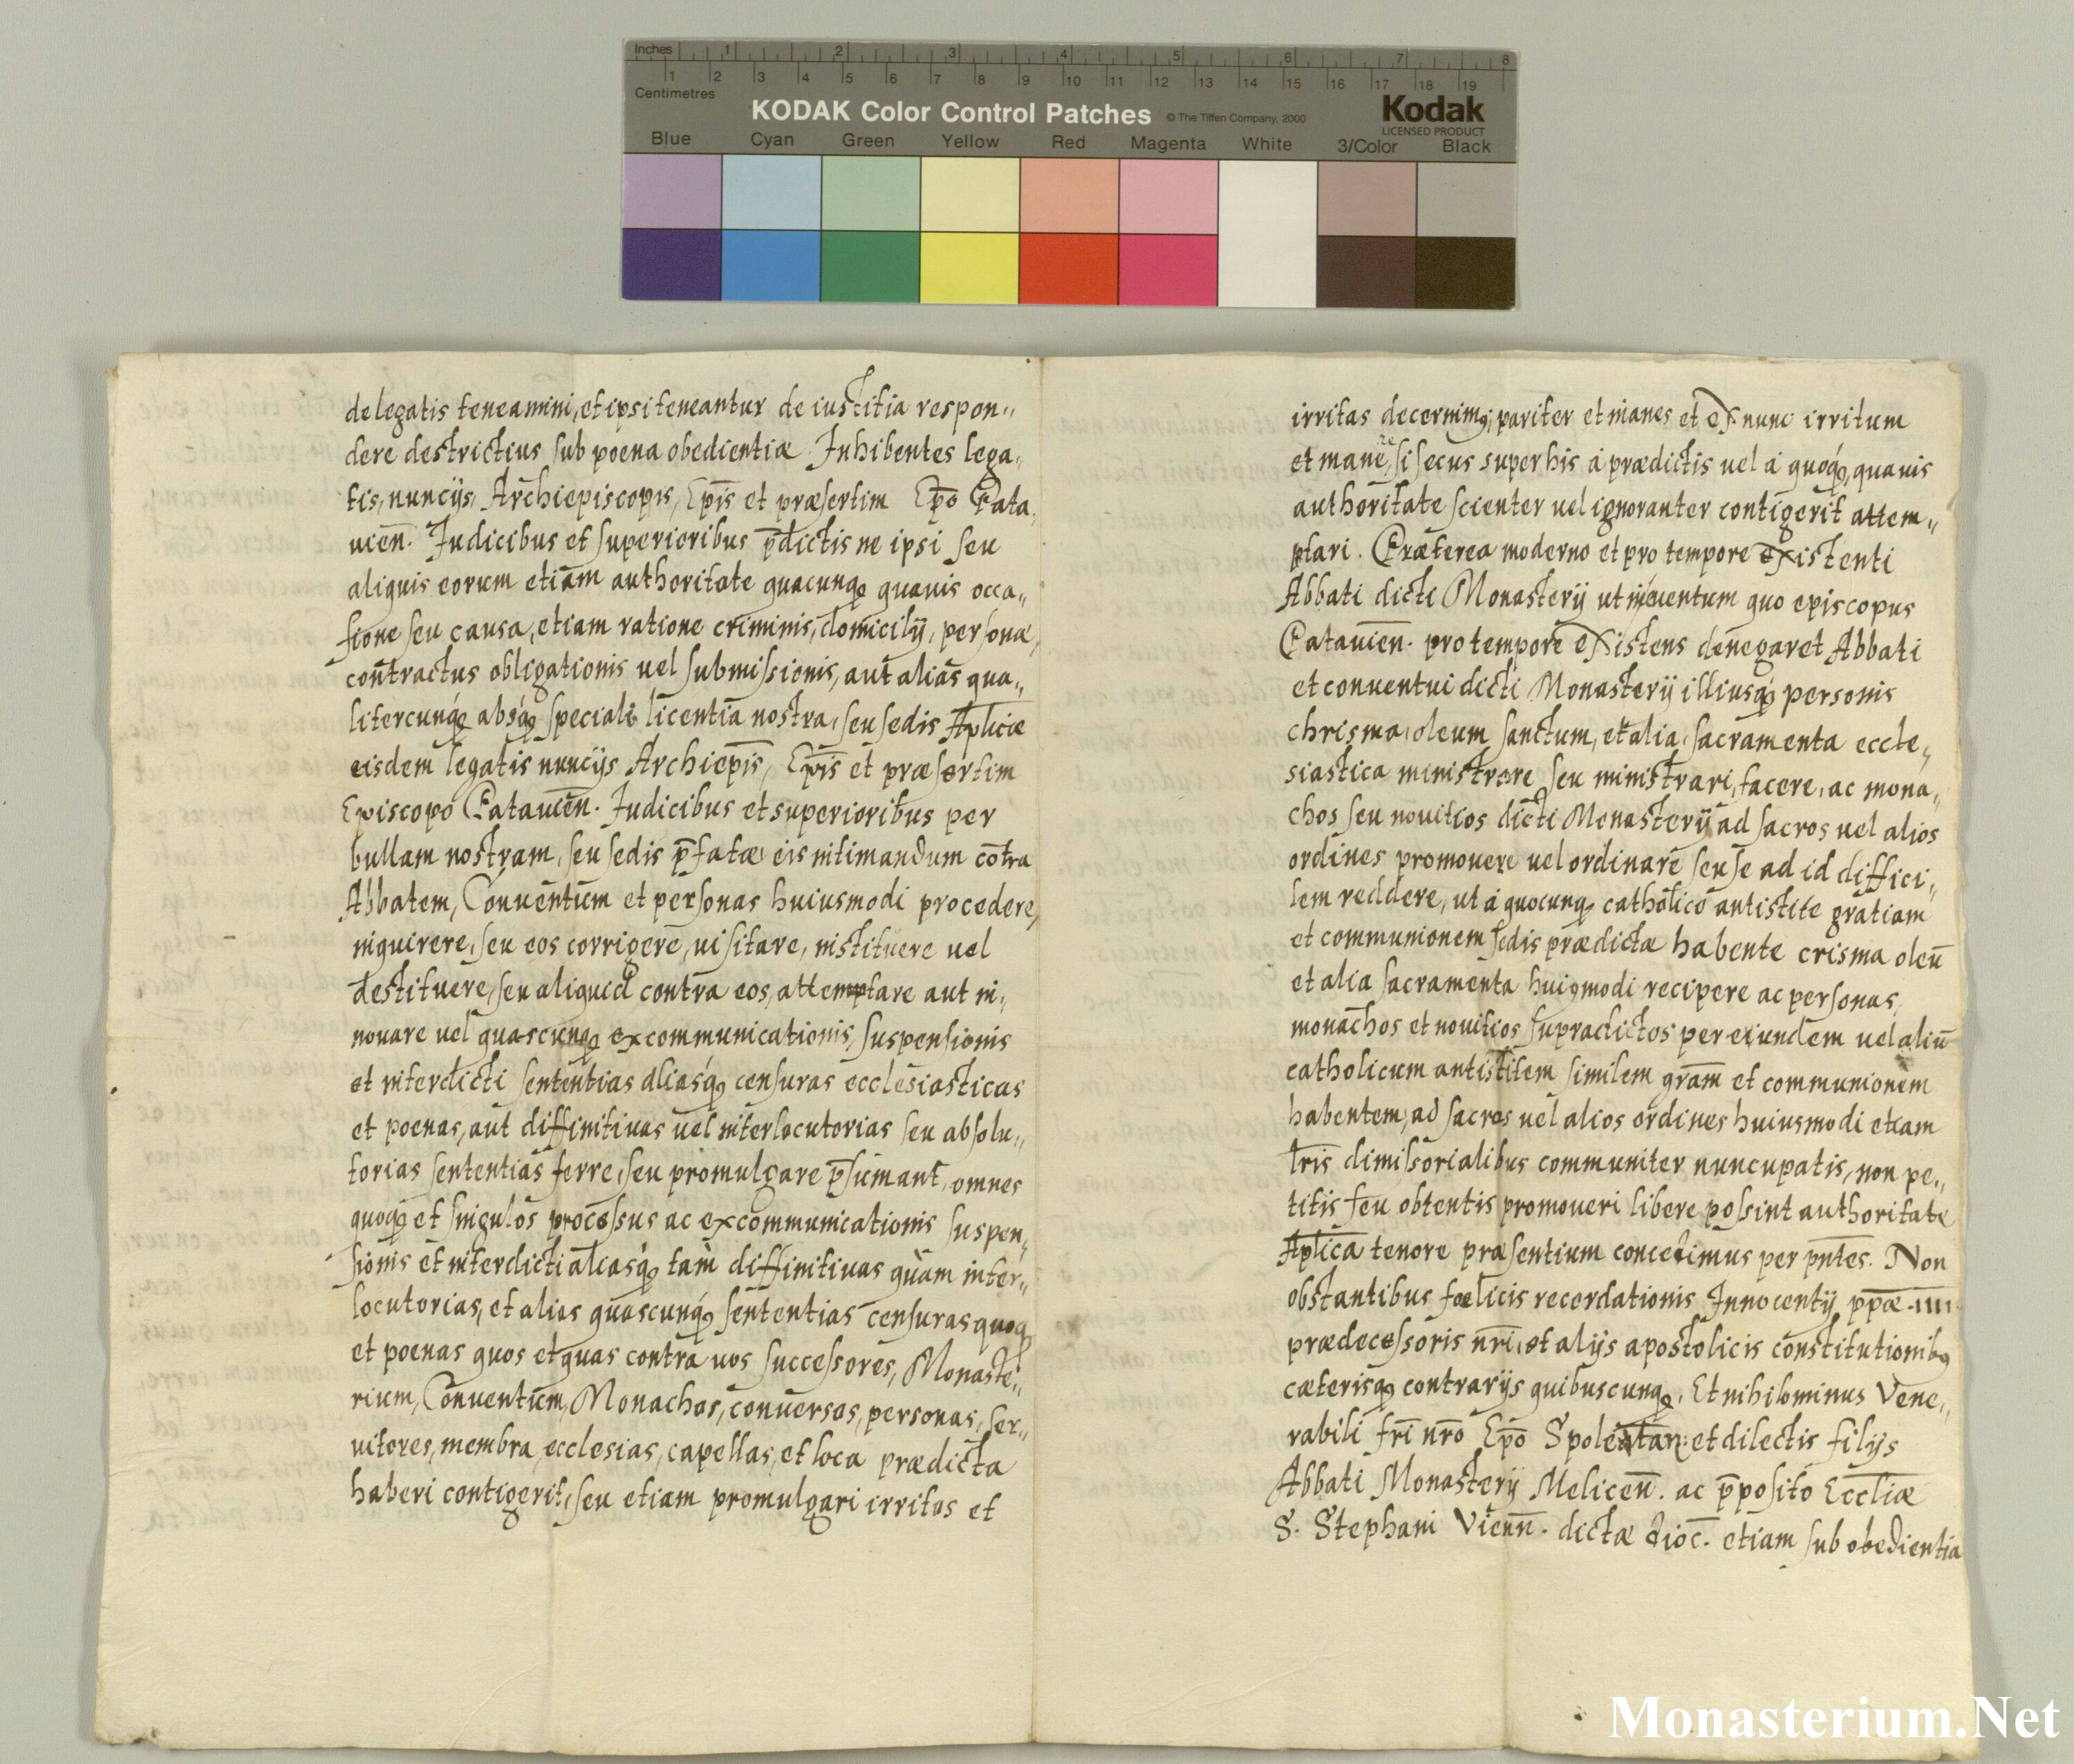 Inches 1 2 3 4 5 6 7 8
1 2 3 4 5 6 7 8 9 10 11 12 13 14 15 16 17 18 19
Centimetres
KODAK Color Control Patches © The Tiffen Company, 2000 Kodak
LICENSED PRODUCT
Blue Cyan Green Yellow Red Magenta White 3/Color Black
delegatis teneamini, et ipsi teneantur de iustitia respon„
dere destrictius sub poena obedientiæ. Inhibentes lega„
tis, nuncijs, Archiepiscopis, Ep̄is et præsertim Ep̄o Pata„
uien̄. Judicibus et superioribus p̄dictis ne ipsi seu
aliquis eorum etiam authoritate quacunqꝫ quauis occa„
sione seu causa, etiam ratione criminis, domicilij, personæ,
contractus obligationis uel submissionis, aut alias qua„
litercunqꝫ absqꝫ speciali licentia nostra, seu sedis Aplicæ
eisdem legatis nuncijs Archiep̄is, Ep̄is et præsertim
Episcopo Patauien̄. Judicibus et superioribus per
bullam nostram, seu sedis p̄fatæ eis intimandum cōtra
Abbatem, Conuentum et personas huiusmodi procedere,
inquirere, seu eos corrigere, uisitare, instituere uel
destituere, seu aliquid contra eos, attemptare aut in„
nouare uel quascunqꝫ excommunicationis, suspensionis
et interdicti sententias aliasqꝫ censuras ecclesiasticas
et poenas, aut diffinitiuas uel interlocutorias seu absolu„
torias sententias ferre, seu promulgare p̄sumant, omnes
quoqꝫ et singulos processus ac excommunicationis suspen„
sionis et interdicti aliasqꝫ tam diffinitiuas quàm inter„
locutorias, et alias quascunqꝫ sententias censuras quoqꝫ
et poenas quos et quas contra uos successores, Monaste„
rium, Conuentum, Monachos, conuersos, personas, ser„
uitores, membra, ecclesias, capellas, et loca prædicta
haberi contigerit, seu etiam promulgari irritos et
irritas decernimꝰ, pariter et inanes et ex nunc irritum
et inane, si secus super his à prædictis uel à quoqꝫ, quauis
authoritate scienter uel ignoranter contigerit attem„
ptari. Præterea moderno et pro tempore existenti
Abbati dicti Monasterij ut in euentum quo episcopus
Patauien̄. pro tempore existens denegaret Abbati
et conuentui dicti Monasterij illiusqꝫ personis
chrisma, oleum sanctum, et alia, sacramenta eccle„
siastica ministrare seu ministrari, facere, ac mona„
chos seu nouitios dicti Monasterij ad sacros uel alios
ordines promouere uel ordinare seu se ad id diffici„
lem reddere, ut à quocunqꝫ catholico antistite gratiam
et communionem sedis prædictæ habente crisma oleū
et alia sacramenta huiꝰmodi recipere ac personas,
monachos et nouitios supradictos per eiundem uel aliū
catholicum antistitem similem gr̄am et communionem
habentem, ad sacros uel alios ordines huiusmodi etiam
l̄ris dimissorialibus communiter nuncupatis, non pe„
titis seu obtentis promoueri libere possint authoritate
Aplica tenore præsentium concedimus per pn̄tes. Non
obstantibus fœlicis recordationis Innocentij pp̄æ .IIII.
prædecessoris nr̄i, et alijs apostolicis constitutionibꝰ
cæterisqꝫ contrarijs quibuscunqꝫ. Et nihilominus Vene„
rabili fr̄i nr̄o Ep̄o Spoletan: et dilectis filijs
Abbati Monasterij Melicen̄. ac p̄posito Eccl̄iæ
S. Stephani Vienn̄. dictæ dioc̄. etiam sub obedientia
Monasterium.Net